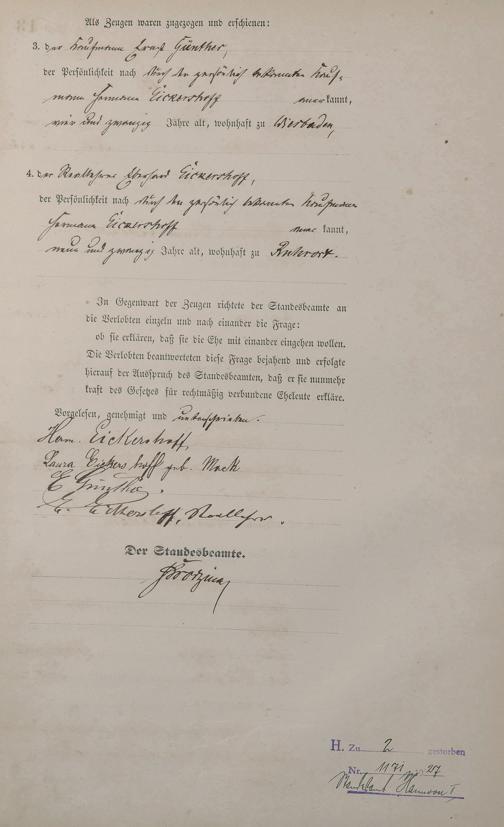 Als Zeugen waren zugezogen und erschienen:
3. der Kaufmann Ernst Günther,
der Persönlichkeit nach durch den persönlich bekannten Kauf-
mann Hermann Eickershoff anerkannt,
vier und zwanzig Jahre alt, wohnhaft zu Wiesbaden,
4. der Reallehrer Eberhard Eickershoff,
der Persönlichkeit nach durch den persönlich bekannten Kaufmann
Hermann Eickershoff anerkannt,
neun und zwanzig Jahre alt, wohnhaft zu
In Gegenwart der Zeugen richtete der Standesbeamte an
die Verlobten einzeln und nach einander die Frage:
ob sie erklären, daß sie die Ehe mit einander eingehen wollen.
Die Verlobten beantworteten diese Frage bejahend und erfolgte
hierauf der Ausspruch des Standesbeamten, daß er sie nunmehr
kraft des Gesetzes für rechtmäßig verbundene Eheleute erkläre.
Vorgelesen, genehmigt und unterschrieben.
Herm. Eickershoff,
Laura Eickershoff geb. Mack
E Günther.
E. Eickershoff, Reallehrer.
Der Standesbeamte.
H. Zu 2 gestorben
Nr. 1171 27
Standesamt Hannover I